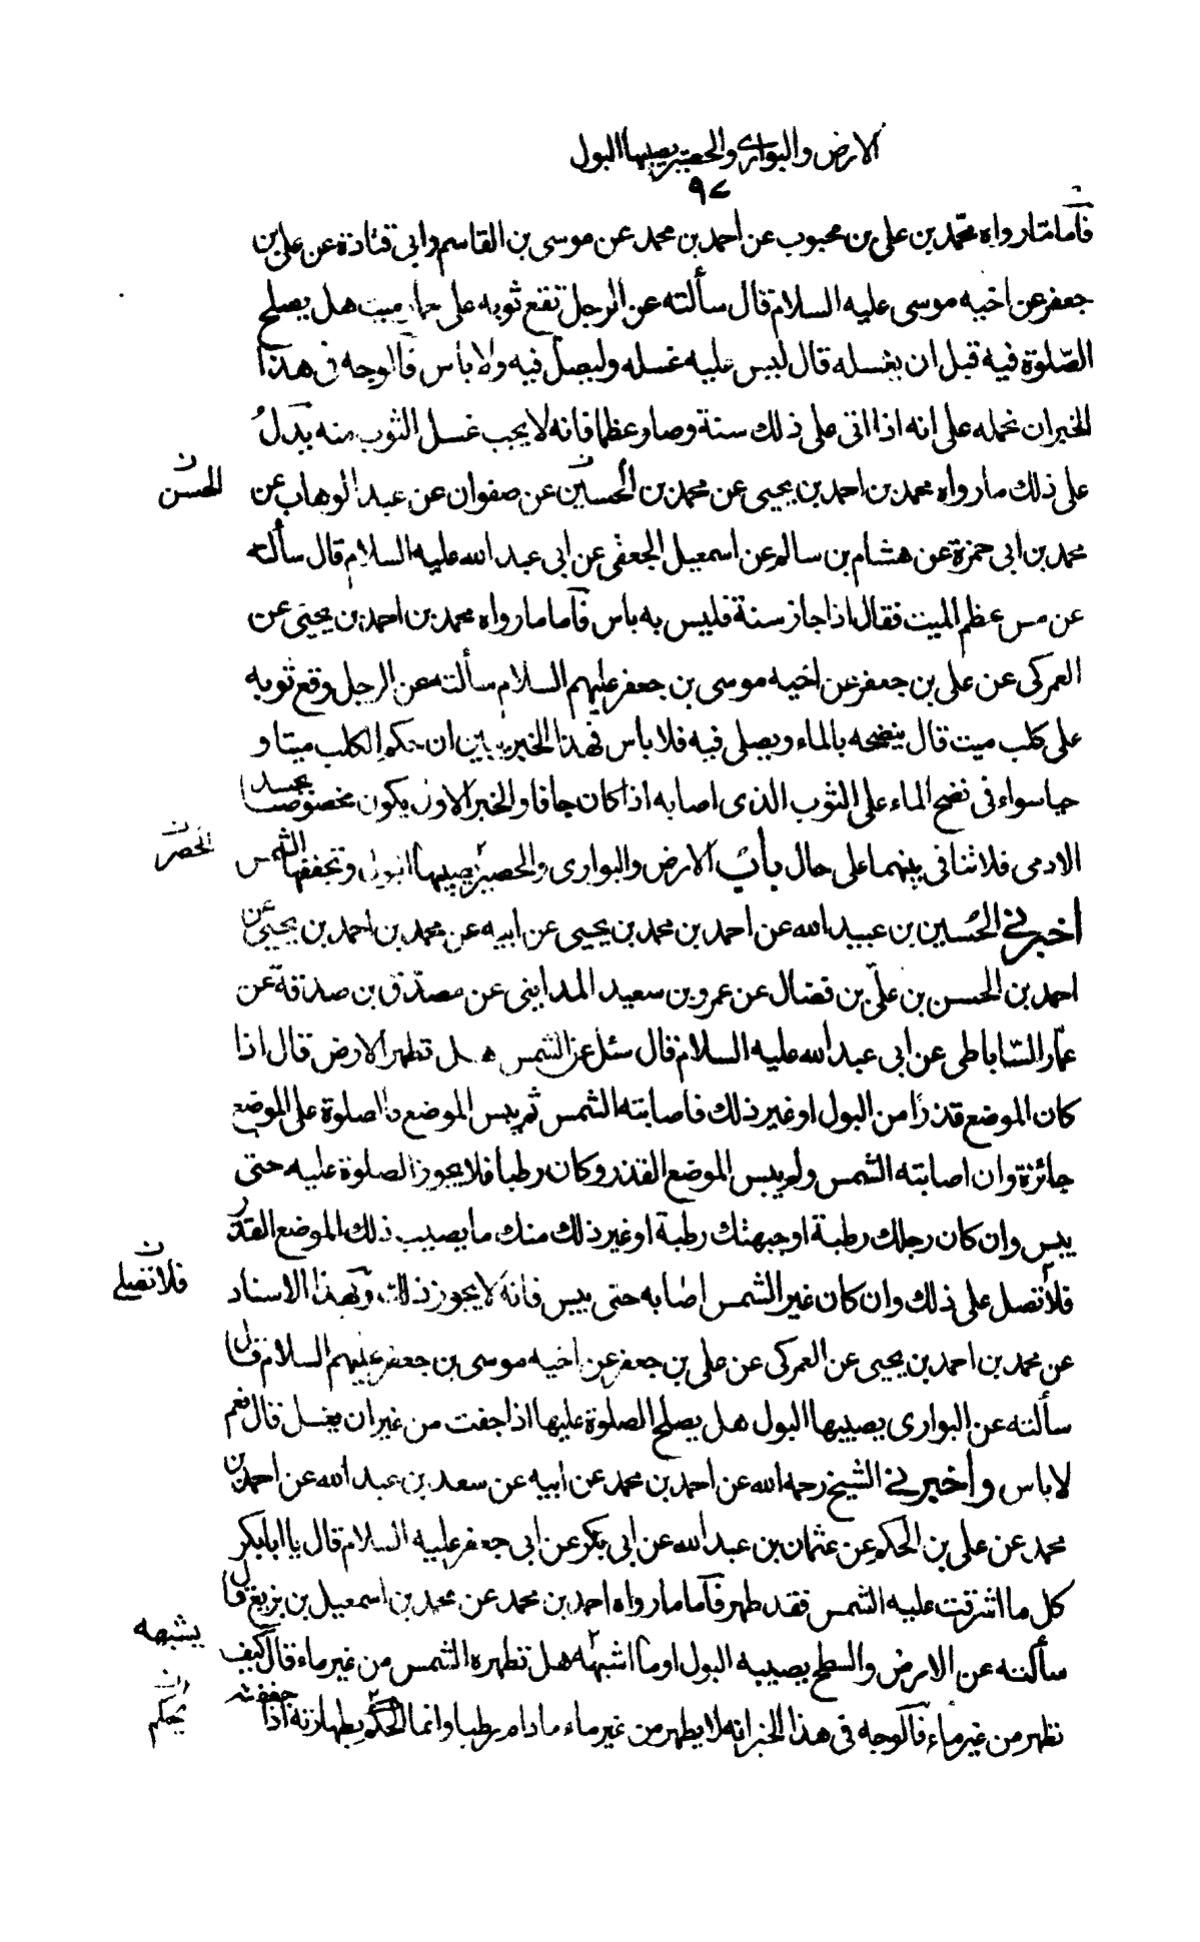 الارض والبواري والحصير يصيبها البول
٩٧
فاما ما رواه محمد بن على بن محبوب عن احمد بن محمد عن موسى بن القاسم وابى قتادة عن على بن
جعفر عن اخيه موسى عليه السلام قال سألته عن الرجل تقع ثوبه على حمار ميت هل يصلح
الصلوة فيه قبل ان يغسله قال ليس عليه غسله وليصل فيه ولا باس فالوجه فى هذا
الخبر ان نحمله على انه اذا اتى على ذلك سنة وصار عظما فانه لا يجب غسل الثوب منه يدل
على ذلك ما رواه محمد بن احمد بن يحيى عن محمد بن الحسين عن صفوان عن عبد الوهاب عن
الحسن ن
محمد بن ابى حمزة عن هشام بن سالم عن اسمعيل الجعفى عن ابى عبد الله عليه السلام قال سألته
عن مس عظم الميت فقال اذا جاز سنة فليس به باس فاما ما رواه محمد بن احمد بن يحيى عن
العمركى عن على بن جعفر عن اخيه موسى بن جعفر عليهم السلام سألته عن الرجل وقع ثوبه
على كلب ميت قال ينضحه بالماء ويصلى فيه فلا باس فهذا الخبر يبين ان حكم الكلب ميتا و
حيا سواء فى نضح الماء على الثوب الذى اصابه اذا كان جافا والخبر الاول يكون مخصوصا بجسد
الادمى فلا تنافى بينهما على حال باب الارض والبوارى والحصير يصيبها البول وتجففها الشمس
الحصر ن
أخبرني الحسين بن عبيد الله عن احمد بن محمد بن يحيى عن ابيه عن محمد بن احمد بن يحيى عن
احمد بن الحسن بن على بن فضال عن عمرو بن سعيد المداينى عن مصدق بن صدقة عن
عمار الساباطى عن ابى عبد الله عليه السلام قال سئل عن الشمس هل تطهر الارض قال اذا
كان الموضع قذرا من البول او غير ذلك فاصابته الشمس ثم يبس الموضع فالصلوة على الموضع
جائزة وان اصابته الشمس ولم ييبس الموضع القذر وكان رطبا فلا يجوز الصلوة عليه حتى
ييبس وان كان رجلك رطبة او جبهتك رطبة او غير ذلك منك ما يصيب ذلك الموضع القذر
فلا تصل على ذلك وان كان غير الشمس اصابه حتى يبس فانه لا يجوز ذلك وبهذا الاسناد
فلا تصلى ن
عن محمد بن احمد بن يحيى عن العمركى عن على بن جعفر عن اخيه موسى بن جعفر عليهم السلام قال
سألته عن البوارى يصيبها البول هل يصلح الصلوة عليها اذا جفت من غير ان يغسل قال نعم
لا باس وأخبرني الشيخ رحمه الله عن احمد بن محمد عن ابيه عن سعد بن عبد الله عن احمد بن
محمد عن على بن الحكم عن عثمان بن عبد الله عن ابى بكر عن ابى جعفر عليه السلام قال يا ابابكر
كل ما اشرقت عليه الشمس فقد طهر فاما ما رواه احمد بن محمد عن محمد بن اسمعيل بن بزيع قال
سألته عن الارض والسطح يصيبه البول او ما اشبهه هل تطهره الشمس من غير ماء قال كيف
يشبهه
تطهر من غير ماء فالوجه فى هذا الخبر انه لا يطهر من غير ماء ما دام رطبا وانما الحكم بطهارته اذا جففته
يحكم ن